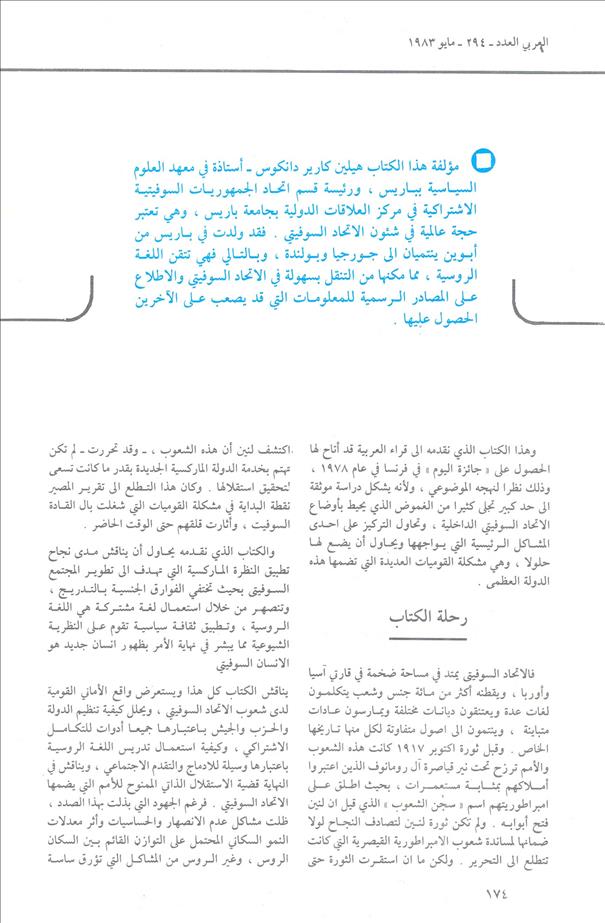 العربي العدد ـ ٢٩٤ ـ مايو ١٩٨٣
مؤلفة هذا الكتاب هيلين كارير دانكوس ـ أستاذة في معهد العلوم
السياسية بباريس ، ورئيسة قسم اتحاد الجمهوريات السوفيتية
الاشتراكية في مركز العلاقات الدولية بجامعة باريس ، وهي تعتبر
حجة عالمية في شئون الاتحاد السوفيتي . فقد ولدت في باريس من
أبوين ينتميان الى جورجيا وبولندة ، وبالتالي فهي تتقن اللغة
الروسية ، مما مكنها من التنقل بسهولة في الاتحاد السوفيتي والاطلاع
على المصادر الرسمية للمعلومات التي قد يصعب على الآخرين
الحصول عليها .
وهذا الكتاب الذي نقدمه الى قراء العربية قد أتاح لها
الحصول على « جائزة اليوم » في فرنسا في عام ١٩٧٨ ،
وذلك نظرا لنهجه الموضوعي ، ولأنه يشكل دراسة موثقة
الى حد كبير تجلى كثيرا من الغموض الذي يحيط بأوضاع
الاتحاد السوفيتي الداخلية ، وتحاول التركيز على احدى
المشاكل الرئيسية التي يواجهها ويحاول أن يضع لها
حلولا ، وهي مشكلة القوميات العديدة التي تضمها هذه
الدولة العظمى .
رحلة الكتاب
فالاتحاد السوفيتي يمتد في مساحة ضخمة في قارتي آسيا
وأوربا ، ويقطنه أكثر من مائة جنس وشعب يتكلمون
لغات عدة ويعتنقون ديانات مختلفة ويمارسون عادات
متباينة ، وينتمون الى اصول متفاوتة لكل منها تاريخها
الخاص . وقبل ثورة اكتوبر ١٩١٧ كانت هذه الشعوب
والأمم ترزح تحت نير قياصرة آل رومانوف الذين اعتبروا
أملاكهم بمثابة مستعمرات ، بحيث اطلق على
امبراطوريتهم اسم « سجن الشعوب » الذي قيل ان لنين
فتح أبوابه . ولم تكن ثورة لنين لتصادف النجاح لولا
ضمانها لمساندة شعوب الامبراطورية القيصرية التي كانت
تتطلع الى التحرير . ولكن ما ان استقرت الثورة حتى
اكتشف لنين أن هذه الشعوب ، ـ وقد تحررت ـ لم تكن
تهتم بخدمة الدولة الماركسية الجديدة بقدر ما كانت تسعى
لتحقيق استقلالها . وكان هذا التطلع الى تقرير المصير
نقطة البداية في مشكلة القوميات التي شغلت بال القادة
السوفيت ، وأثارت قلقهم حتى الوقت الحاضر .
والكتاب الذي نقدمه يحاول أن يناقش مدى نجاح
تطبيق النظرة الماركسية التي تهدف الى تطوير المجتمع
السوفيتي بحيث تختفي الفوارق الجنسية بالتدريج ،
وتنصهر من خلال استعمال لغة مشتركة هي اللغة
الروسية ، وتطبيق ثقافة سياسية تقوم على النظرية
الشيوعية مما يبشر في نهاية الأمر بظهور انسان جديد هو
الانسان السوفيتي
يناقش الكتاب كل هذا ويستعرض واقع الأماني القومية
لدى شعوب الاتحاد السوفيتي ، ويحلل كيفية تنظيم الدولة
والحزب والجيش باعتبارها جميعا أدوات للتكامل
الاشتراكي ، وكيفية استعمال تدريس اللغة الروسية
باعتبارها وسيلة للادماج والتقدم الاجتماعي ، ويناقش في
النهاية قضية الاستقلال الذاتي الممنوح للأمم التي يضمها
الاتحاد السوفيتي . فرغم الجهود التي بذلت بهذا الصدد ،
ظلت مشاكل عدم الانصهار والحساسيات وأثر معدلات
النمو السكاني المحتمل على التوازن القائم بين السكان
الروس ، وغير الروس من المشاكل التي تؤرق ساسة
١٧٤